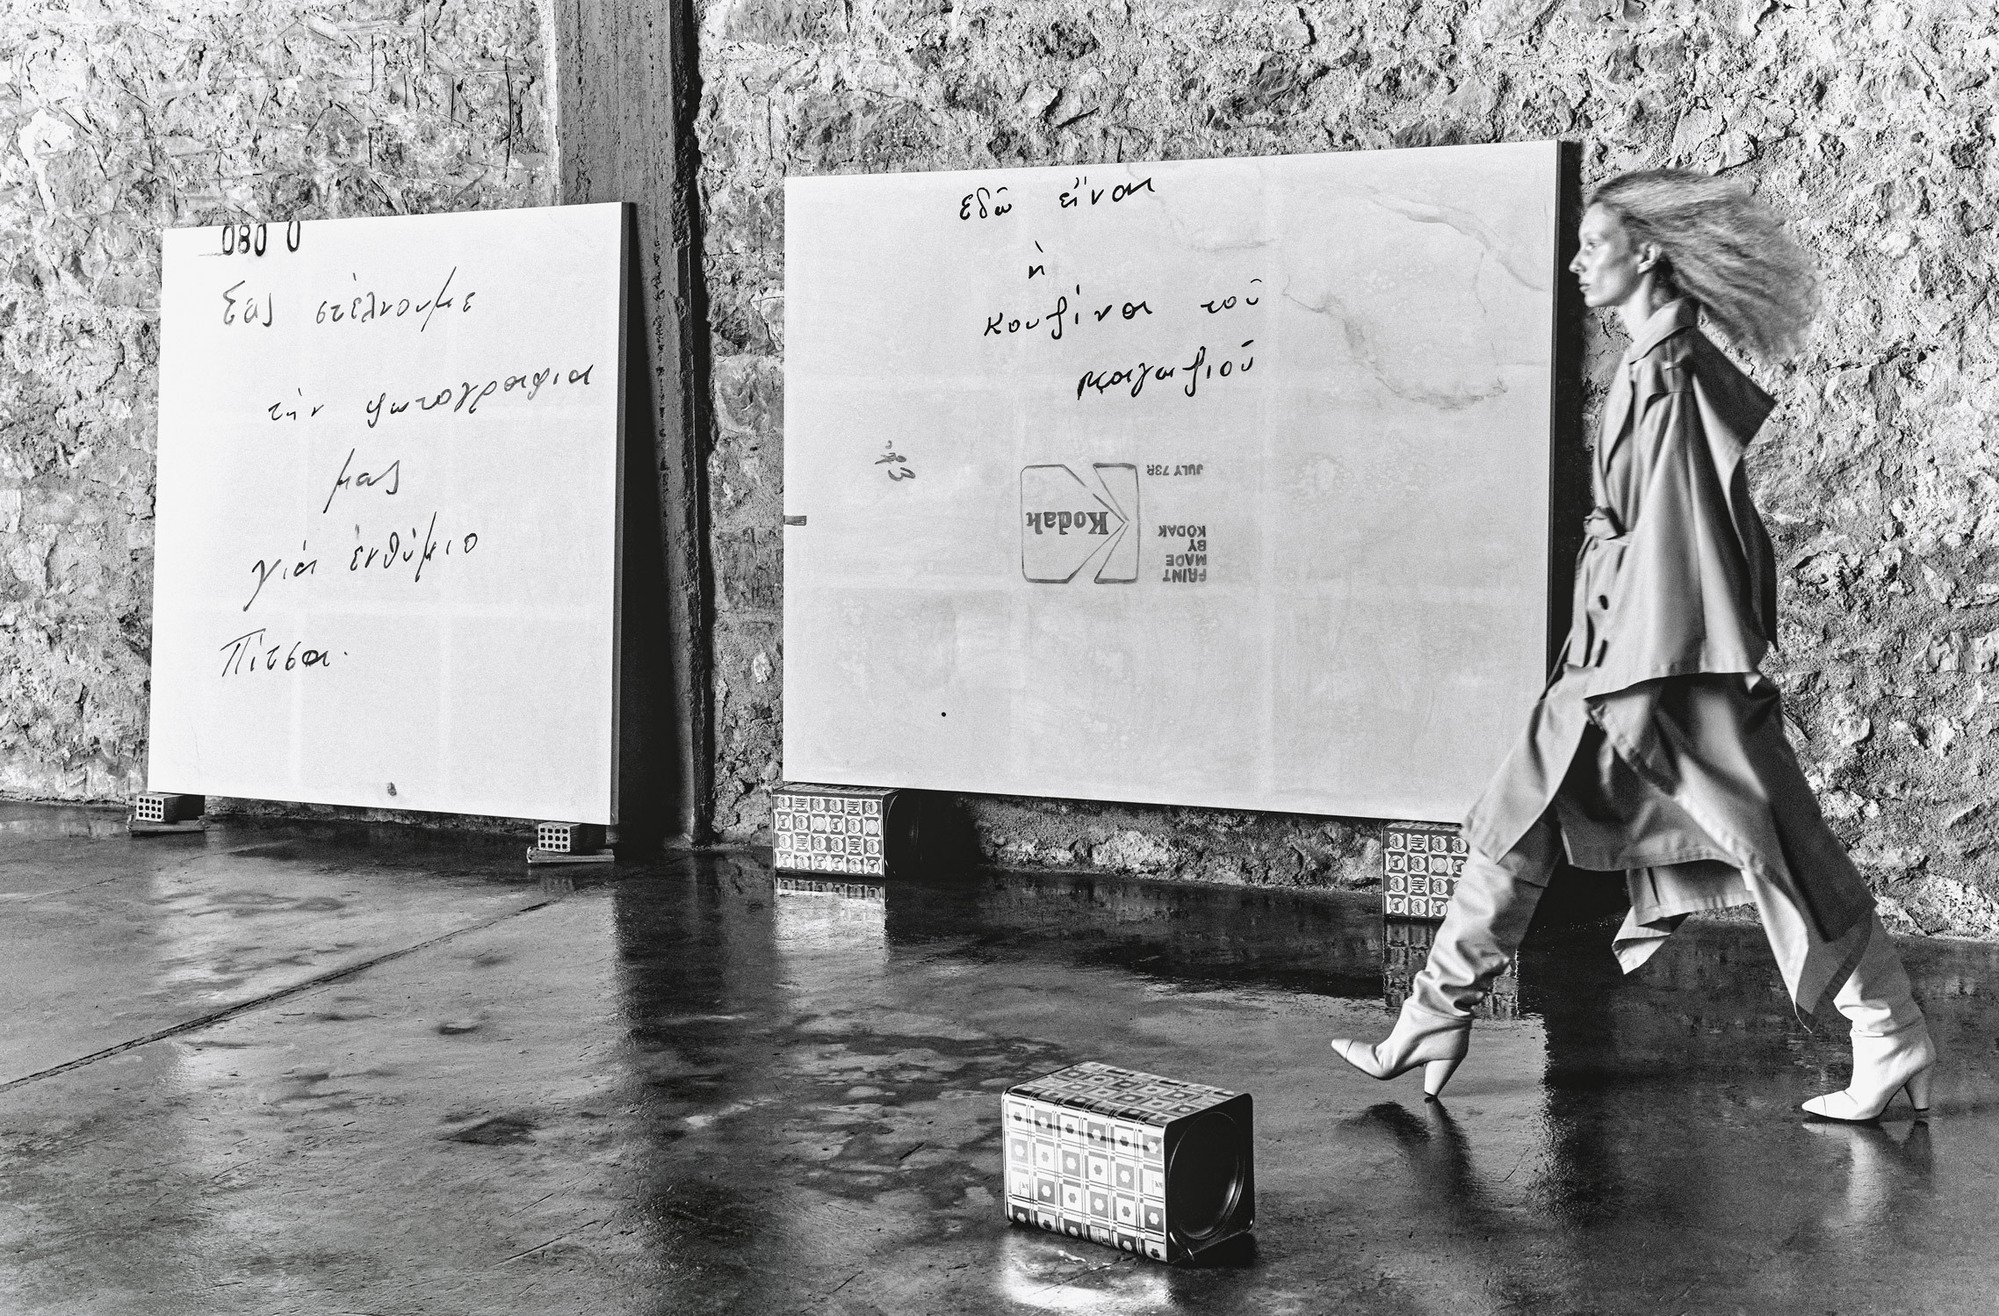 080 0
Σας στέλνουμε
τὴν φωτογραφια
μας
γιὰ ἐνθύμιο
Πίτσα.
ἐδῶ εἶναι
ἡ
κουζίνα τοῦ
μαγαζιοῦ
Kodak
PAINT
MADE
BY
KODAK
JULY 73R